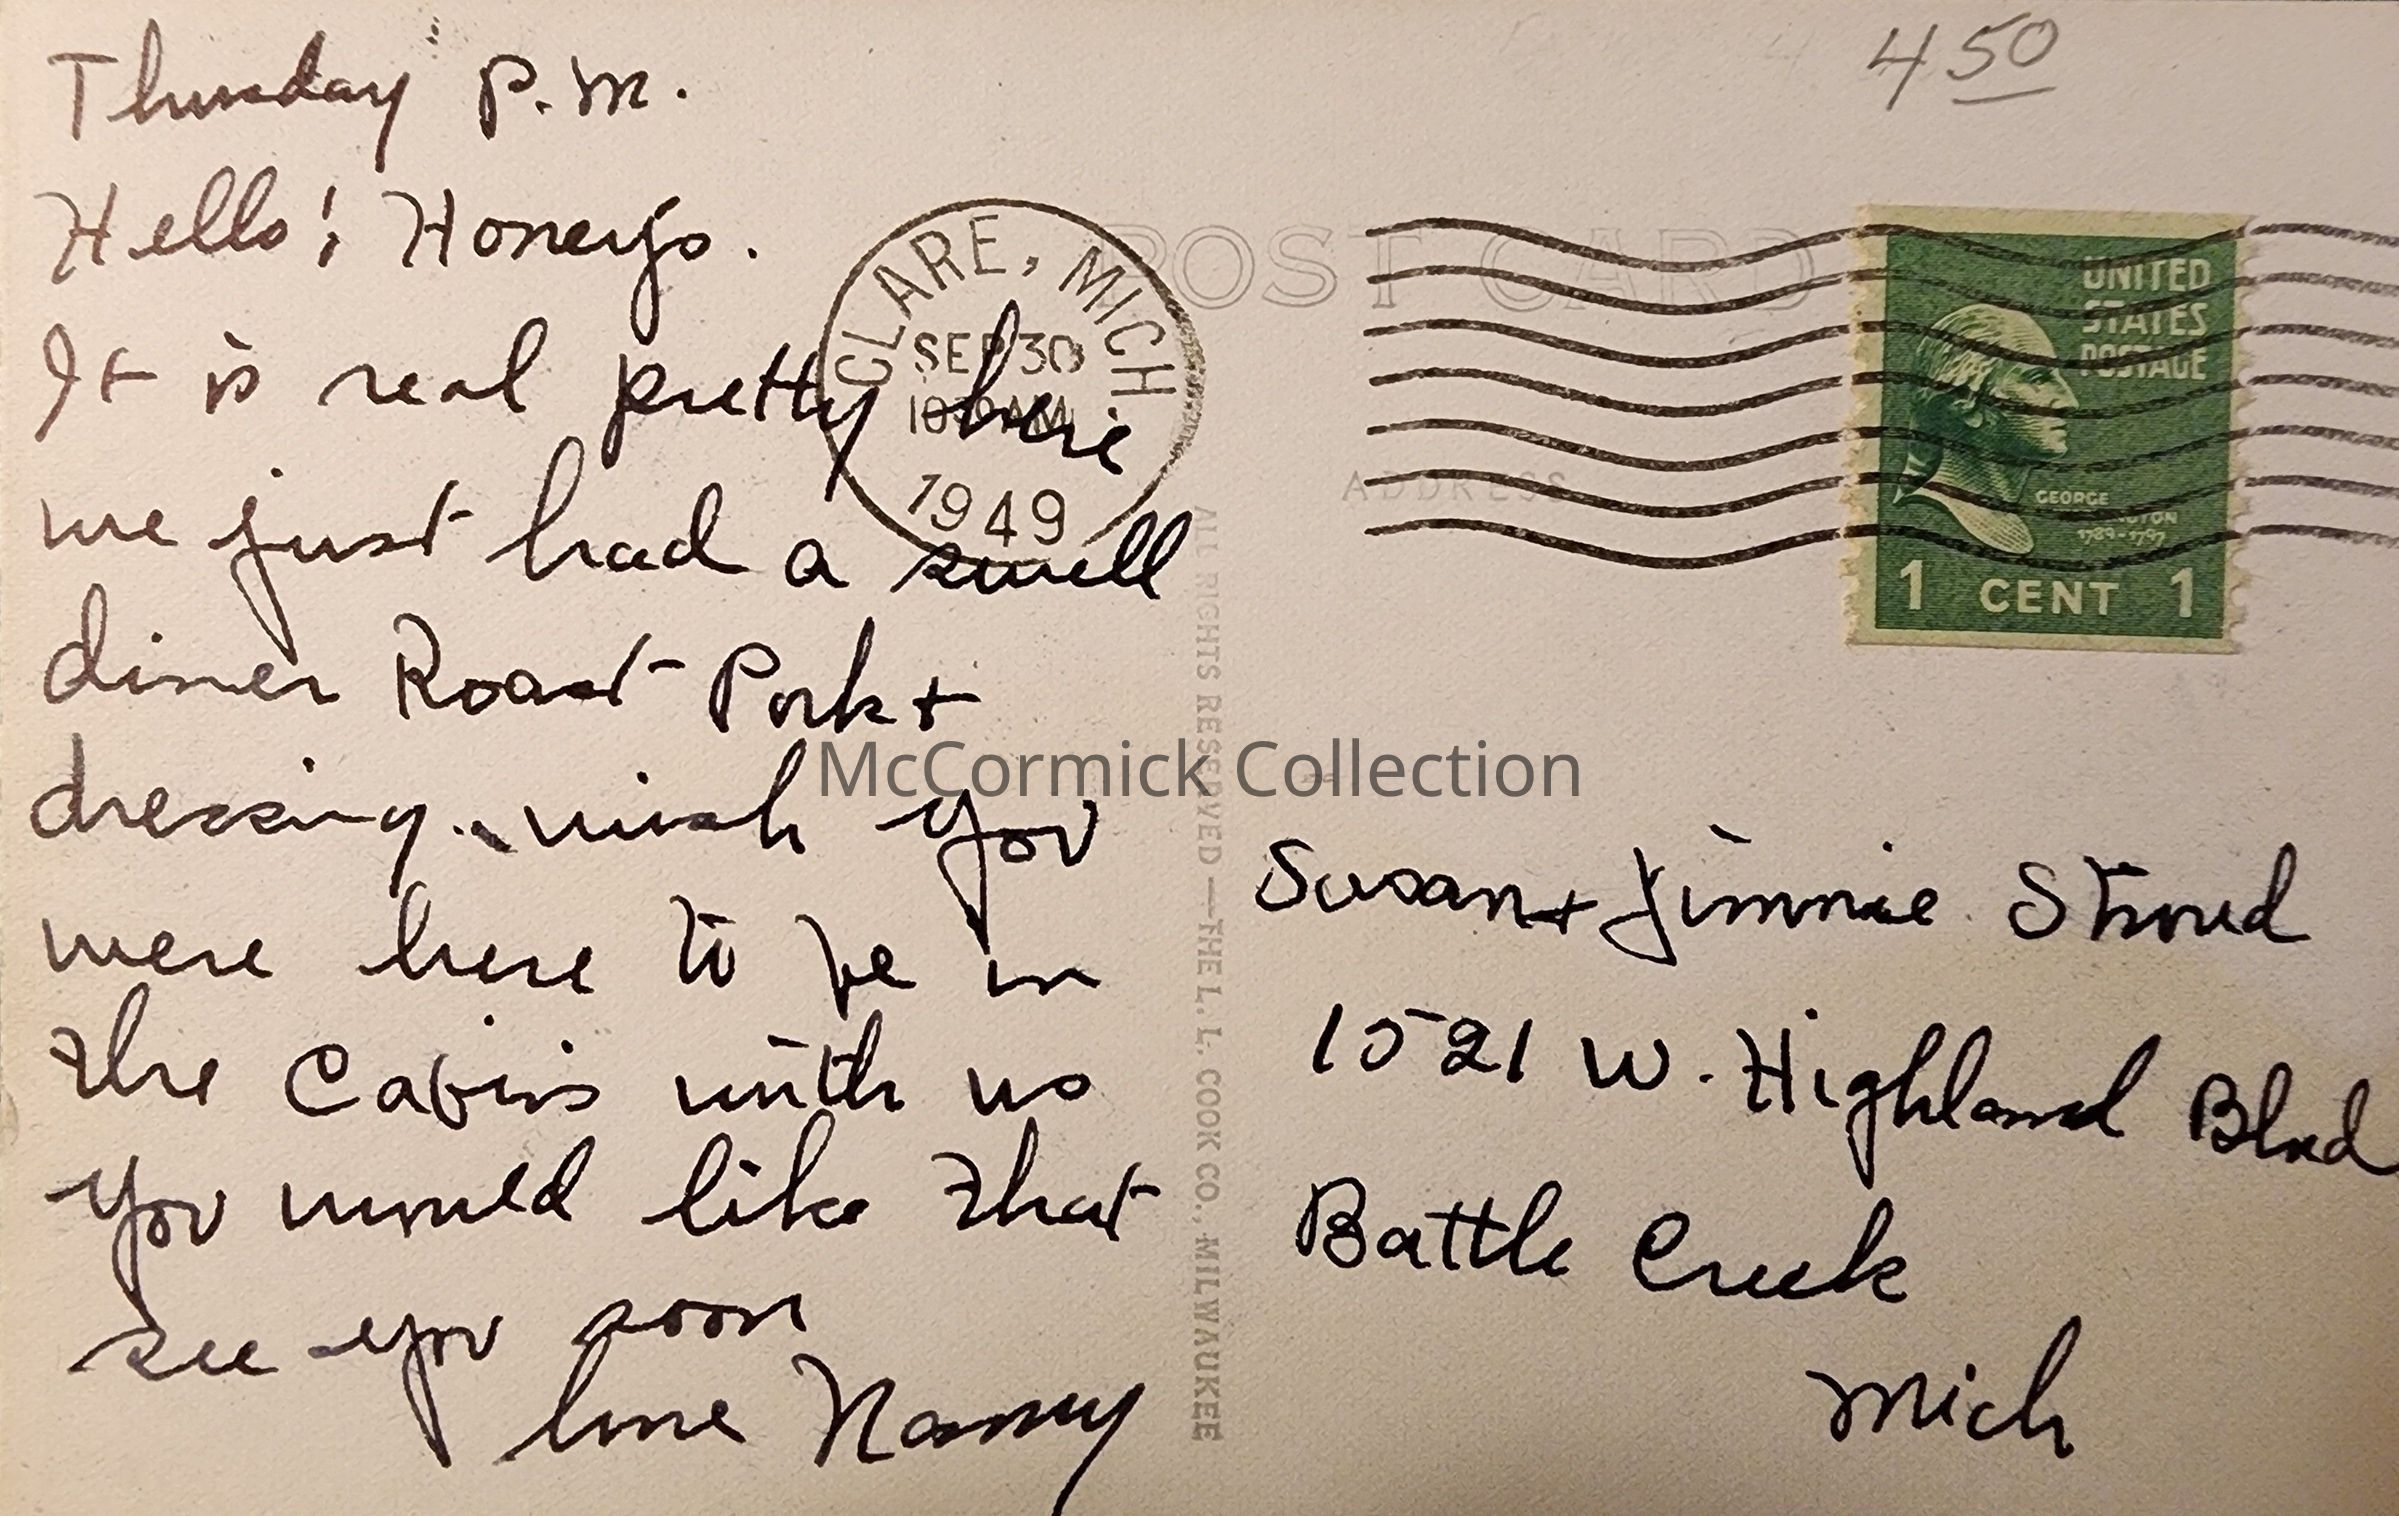 Thursday P.M.
Hello! Honeys.
It is real pretty here
we just had a swell
dinner Roast Pork +
dressing.. wish you
were here to be in
the Cabins with us
you would like that
see you soon
love Nanny
4 50
POST CARD
ADDRESS
CLARE, MICH
SEP 30
AM
1949
UNITED
STATES
POSTAGE
GEORGE
1789-1797
1 CENT 1
ALL RIGHTS RESERVED — THE L. L. COOK CO., MILWAUKEE
McCormick Collection
Susan + Jimmie Stroud
1521 W. Highland Blvd
Battle Creek
Mich